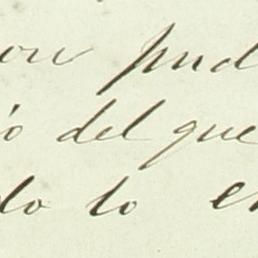 on pud
ó del que
do lo en